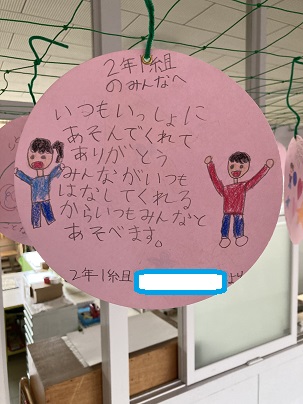 2年1組
のみんなへ
いつもいっしょに
あそんでくれて
ありがとう
みんながいつも
はなしてくれる
からいつもみんなと
あそべます。
2年1組
より